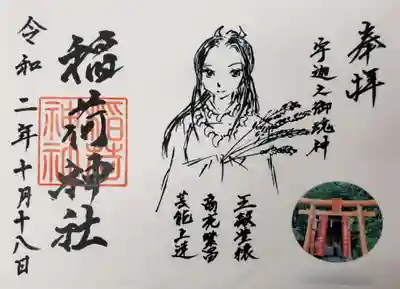 奉拝
宇迦之御魂神
五穀豊穣
商売繁昌
芸能上達
稲荷神社
稲荷神社
令和二年十月十八日